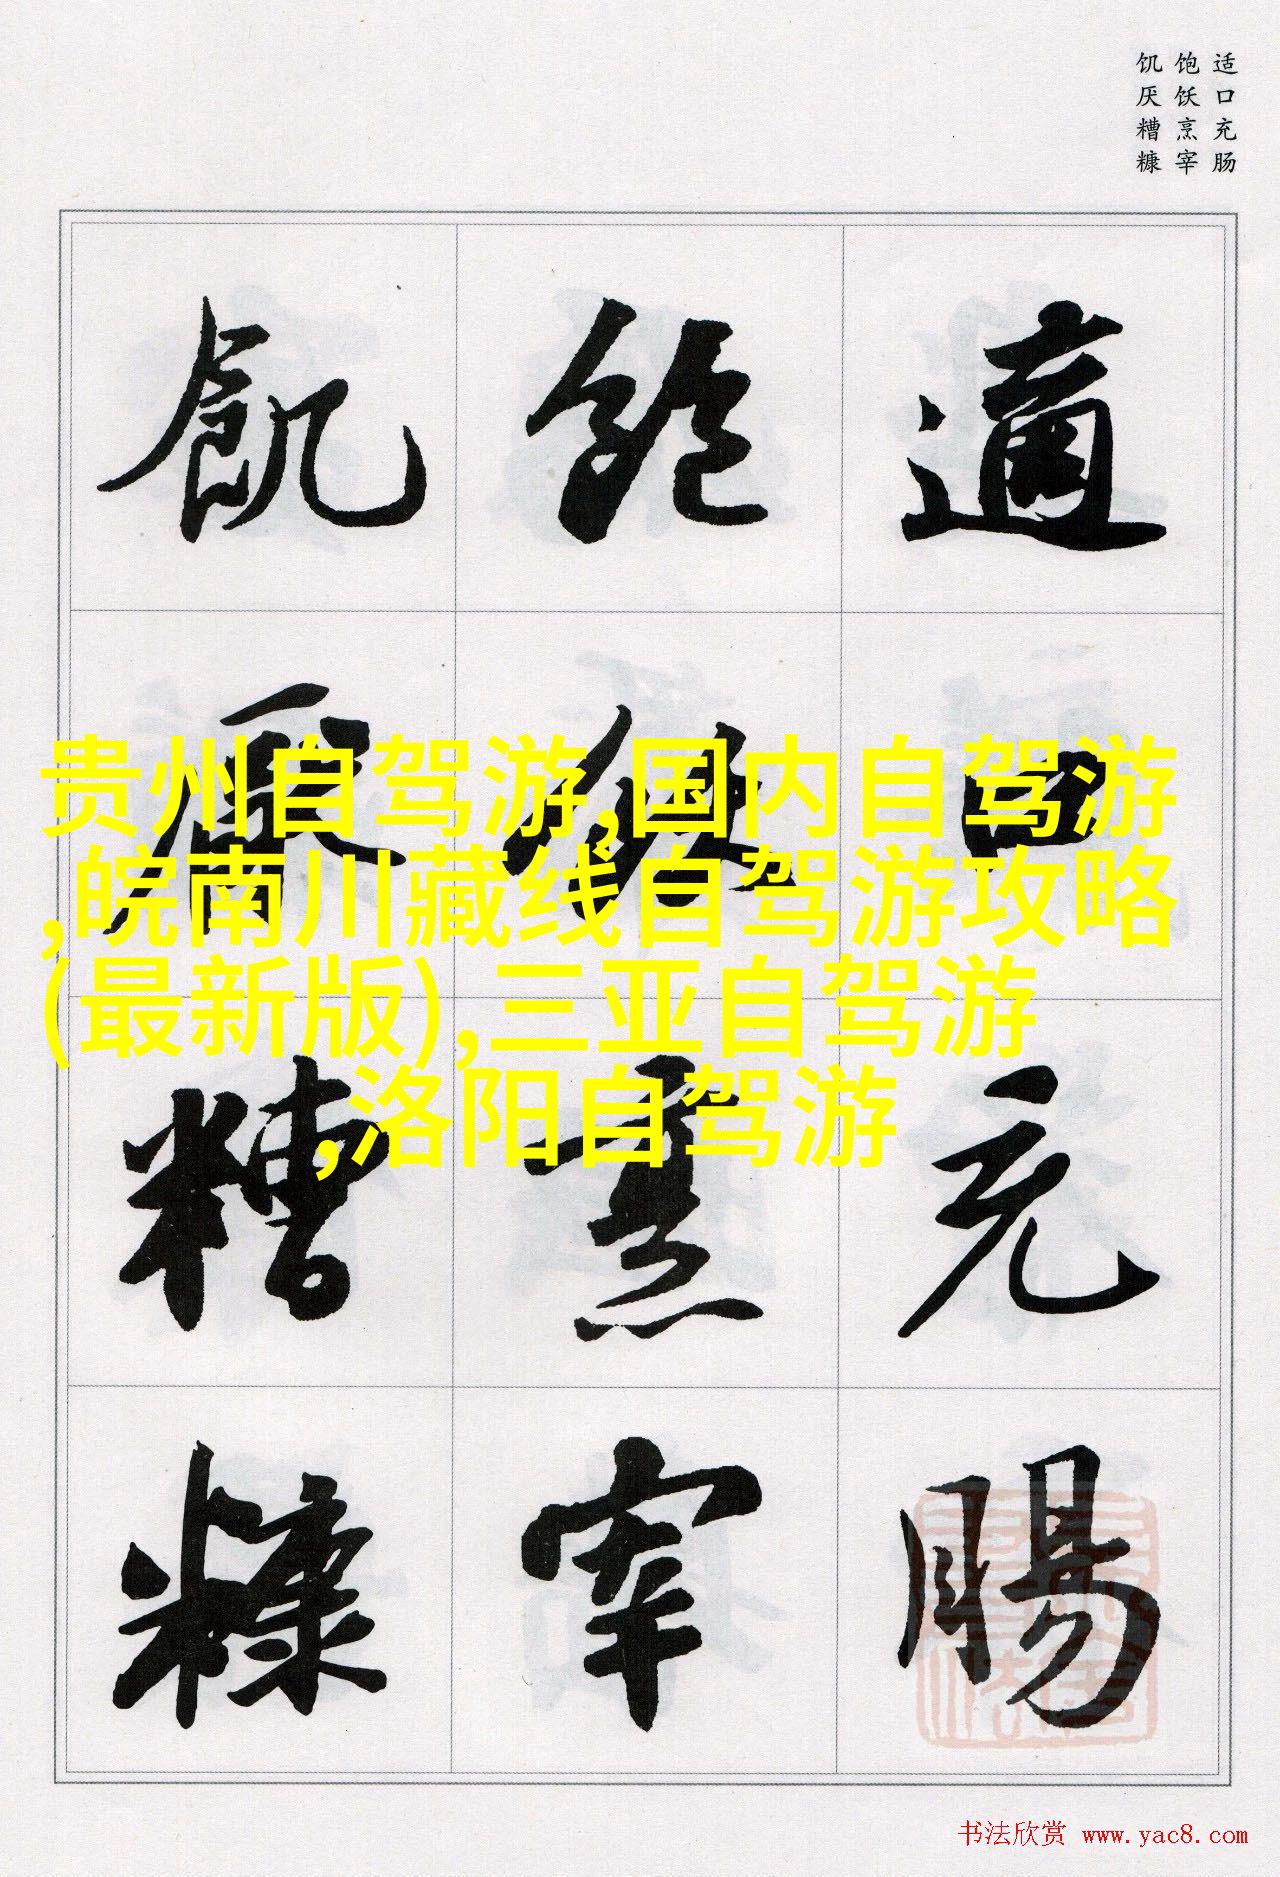 适口充肠
饱饫烹宰
饥厌糟糠
適口充腸
飽飫烹宰
飢厭糟糠
贵州自驾游,国内自驾游
,皖南川藏线自驾游攻略
(最新版),三亚自驾游
,洛阳自驾游
书法欣赏 www.yac8.com